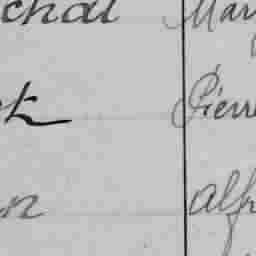 chal Mar
et Pierre
on alf